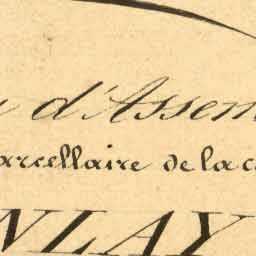 d'Assem
arcellaire de la c
NLAY